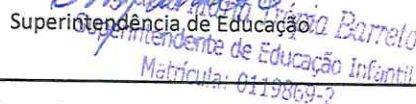 Barreto
Superintendência de Educação
Superintendente de Educação Infantil
Matrícula: 0119869-2